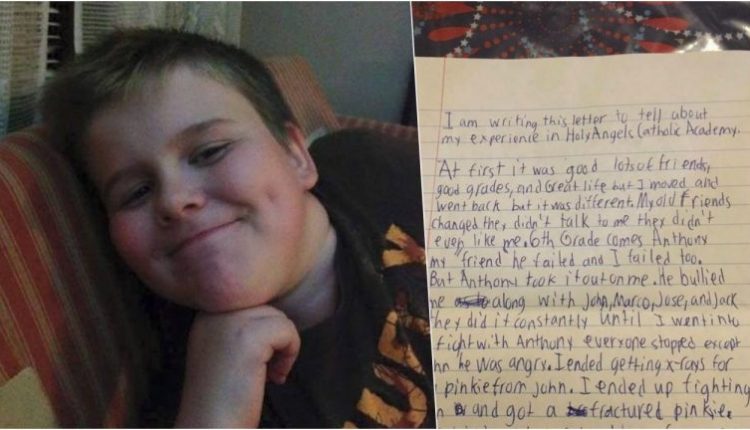 I am writing this letter to tell about
my experience in Holy Angels Catholic Academy.
At first it was good lots of friends,
good grades, and Great life but I moved and
went back but it was different. My old friends
changed they didn't talk to me they didn't
even like me. 6th Grade comes Anthony
my "friend" he failed and I failed too.
But Anthony took it out on me. He bullied
me along with John, Marco, Jose, and Jack
they did it constantly until I went into
fight with Anthony everyone stopped except
hn he was angry. I ended getting x-rays for
pinkie from John. I ended up fighting
n and got a fractured pinkie.